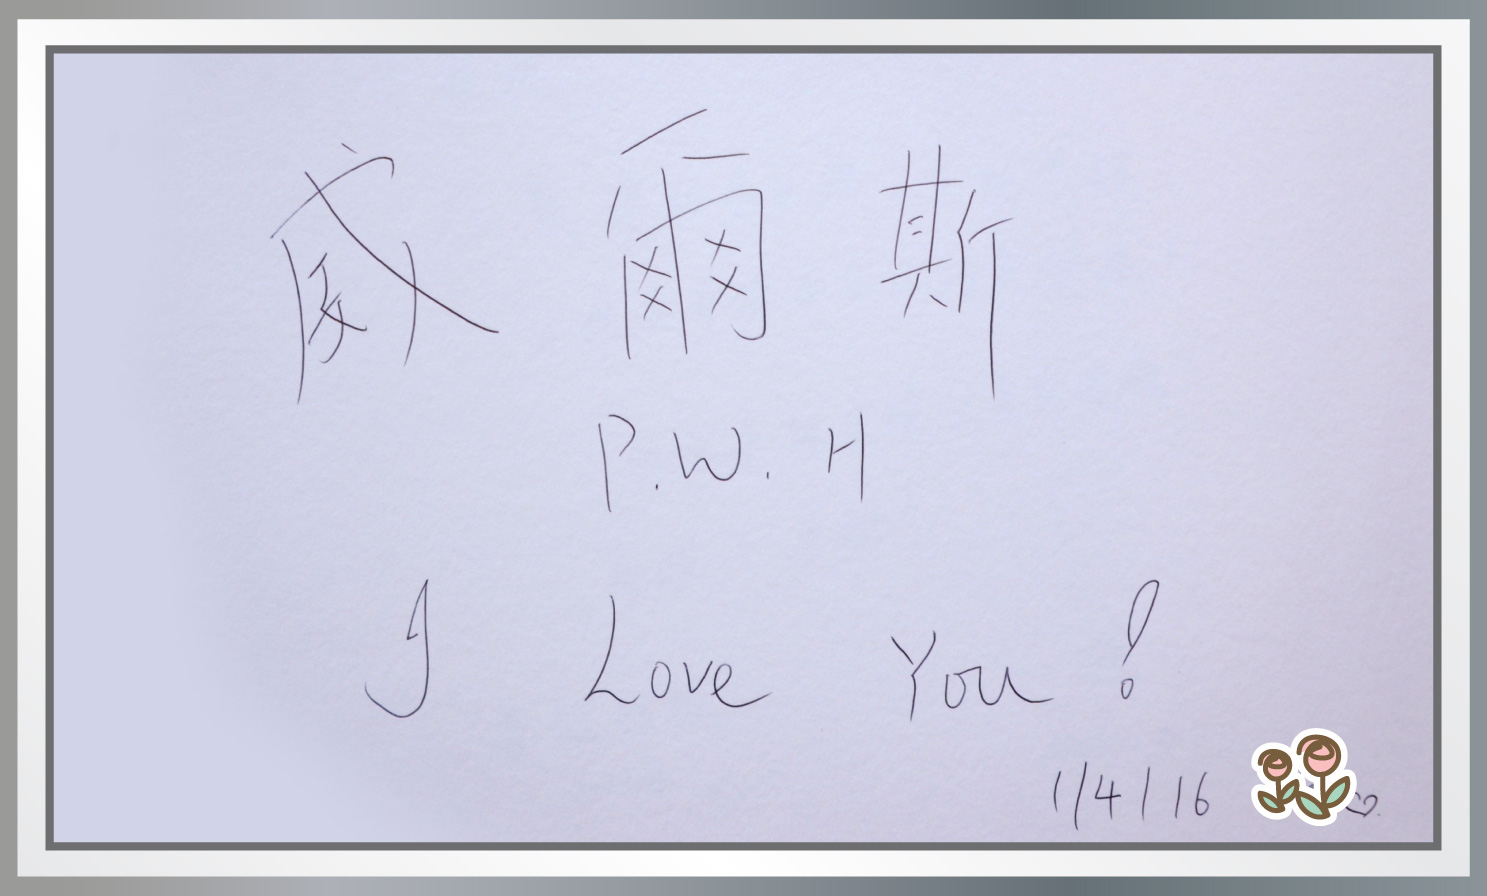 威爾斯
P.W.H
I Love You!
1/4/16